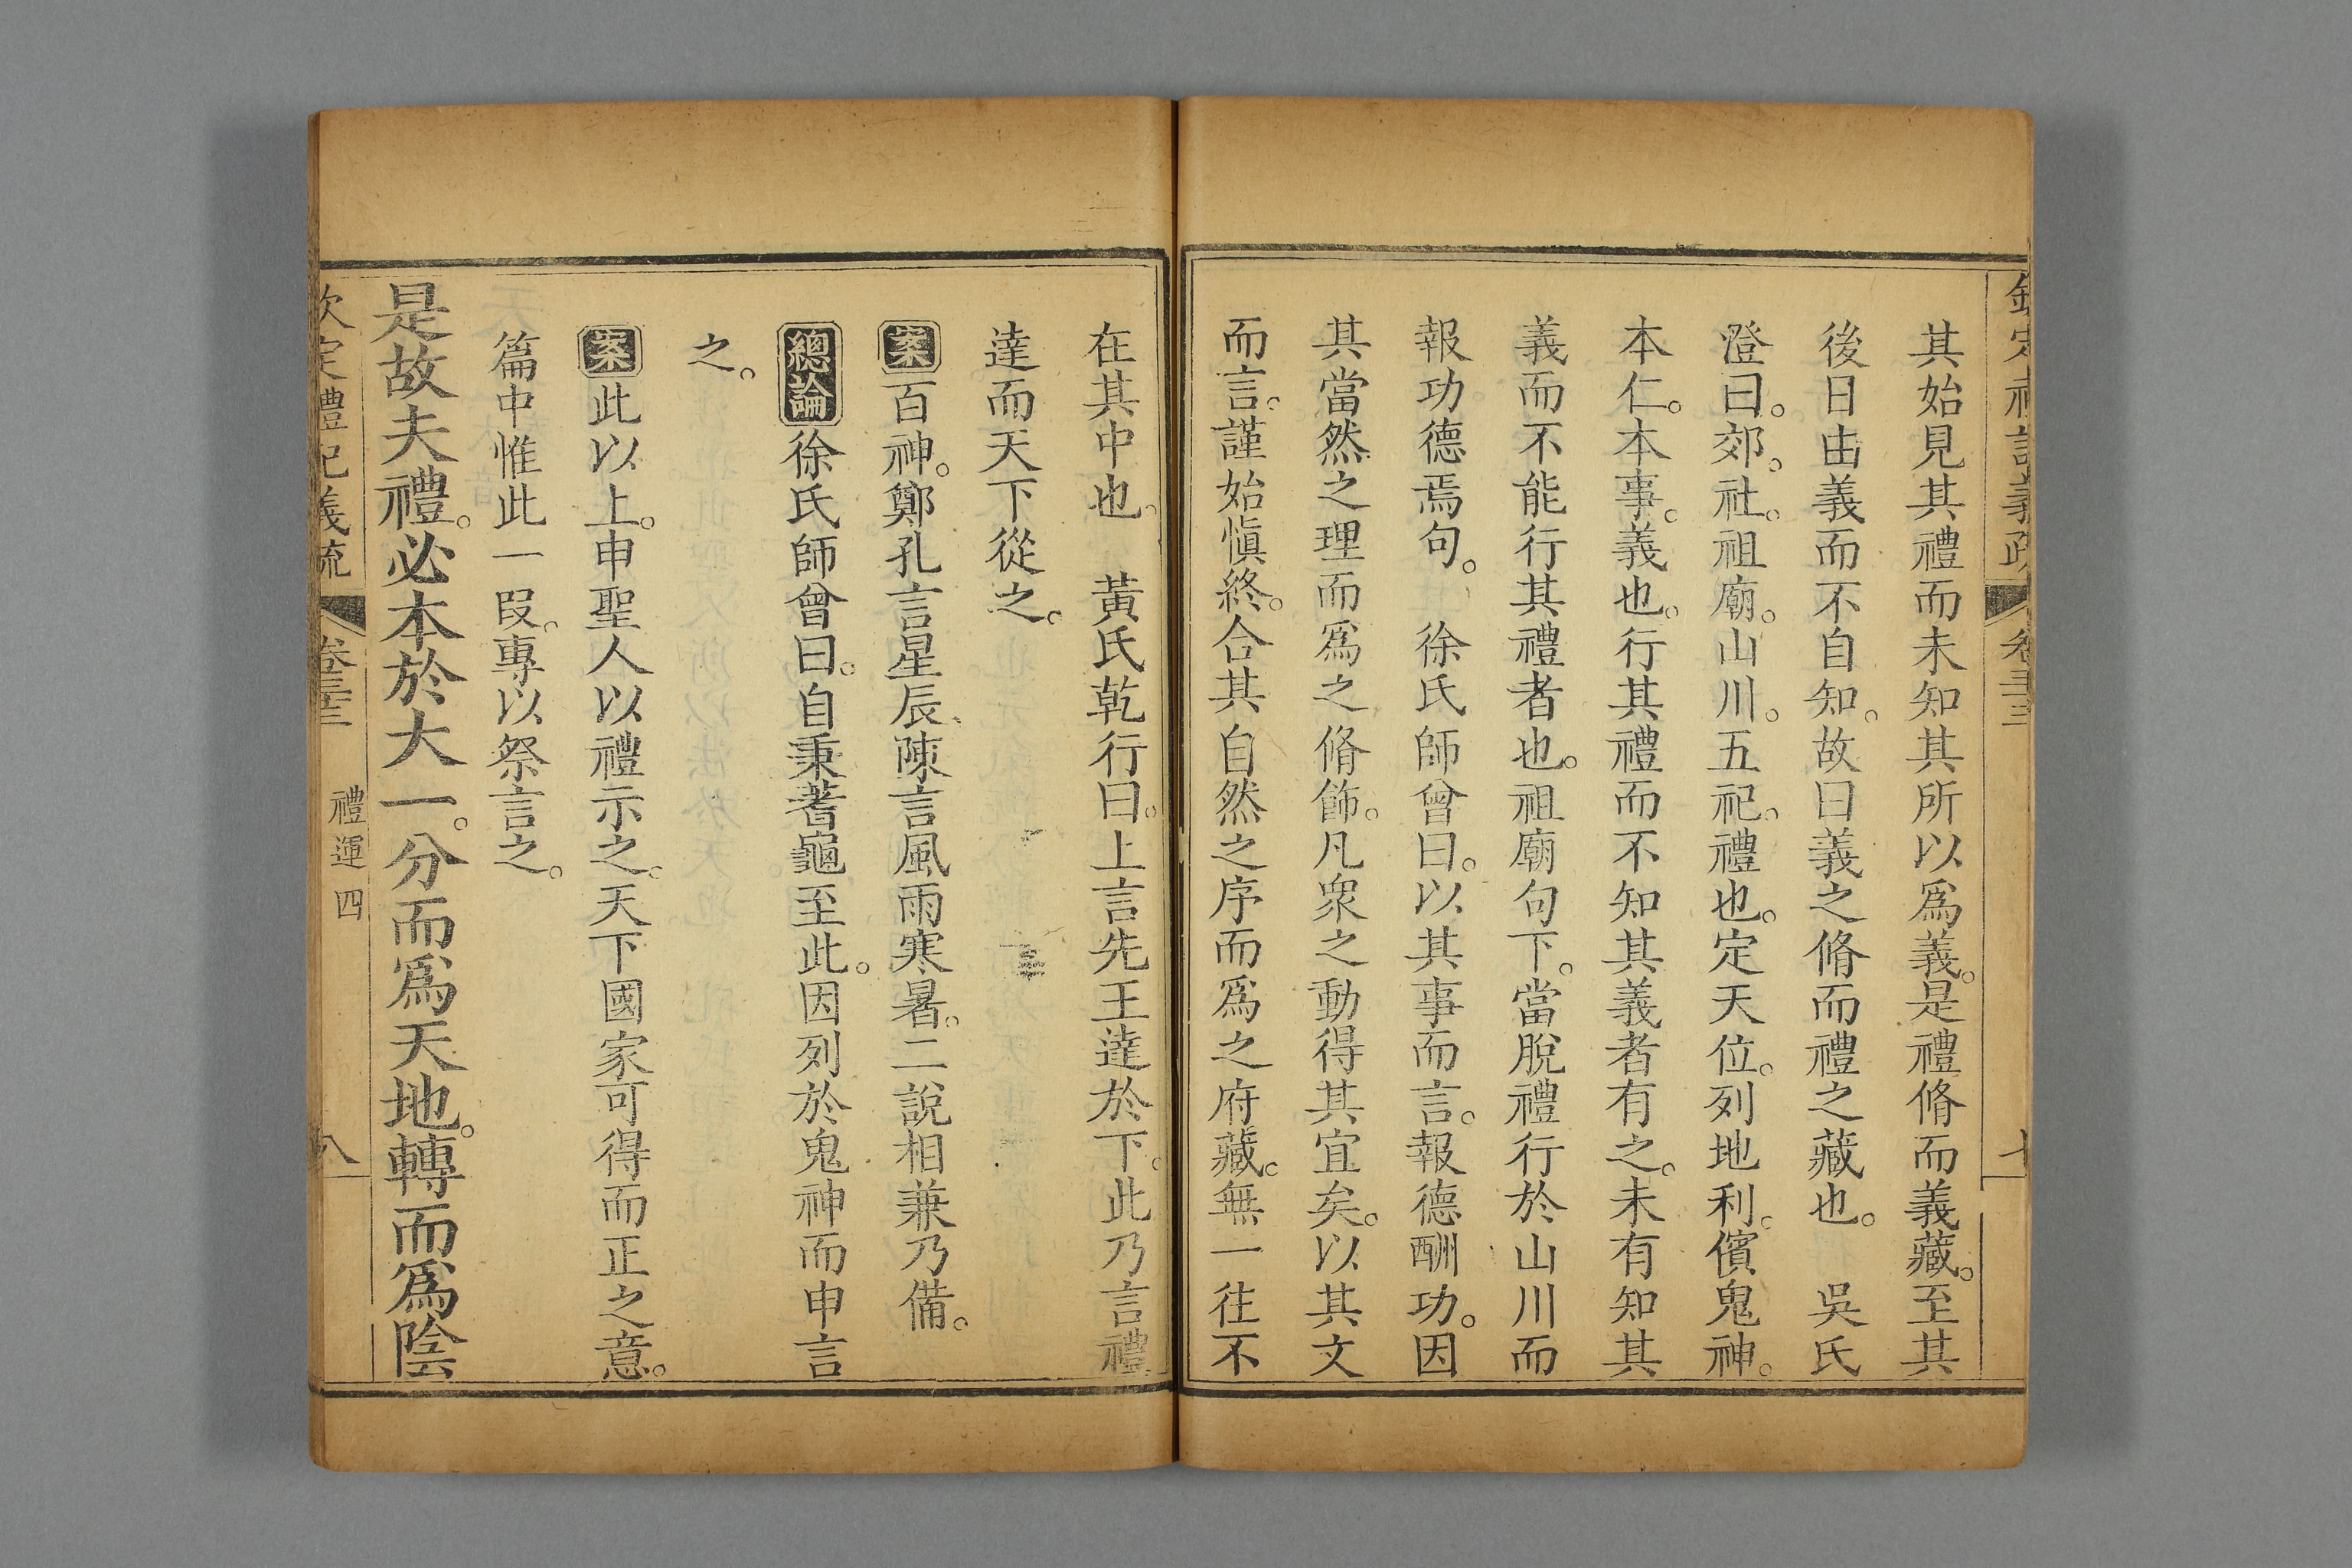 其始見其禮而未知其所以爲義。是禮脩而義藏。至其
後日由義而不自知。故曰義之脩而禮之藏也。 吳氏
澄曰。郊。社。祖廟。山川。五祀。禮也。定天位。列地利。儐鬼神。
本仁。本事。義也。行其禮而不知其義者有之。未有知其
義而不能行其禮者也。祖廟句下。當脫禮行於山川而
報功德焉句。 徐氏師曾曰。以其事而言。報德酬功。因
其當然之理而爲之脩飾。凡衆之動得其宜矣。以其文
而言。謹始愼終。合其自然之序而爲之府藏。無一往不
在其中也。 黃氏乾行曰。上言先王達於下。此乃言禮
達而天下從之。
案百神。鄭孔言星辰、陳言風雨寒暑。二說相兼乃備。
總論徐氏師曾曰。自秉蓍龜至此。因列於鬼神而申言
之。
案此以上。申聖人以禮示之。天下國家可得而正之意。
篇中惟此一段。專以祭言之。
是故夫禮。必本於大一。分而爲天地。轉而爲陰
欽定禮記義疏 卷三十三 禮運四 八